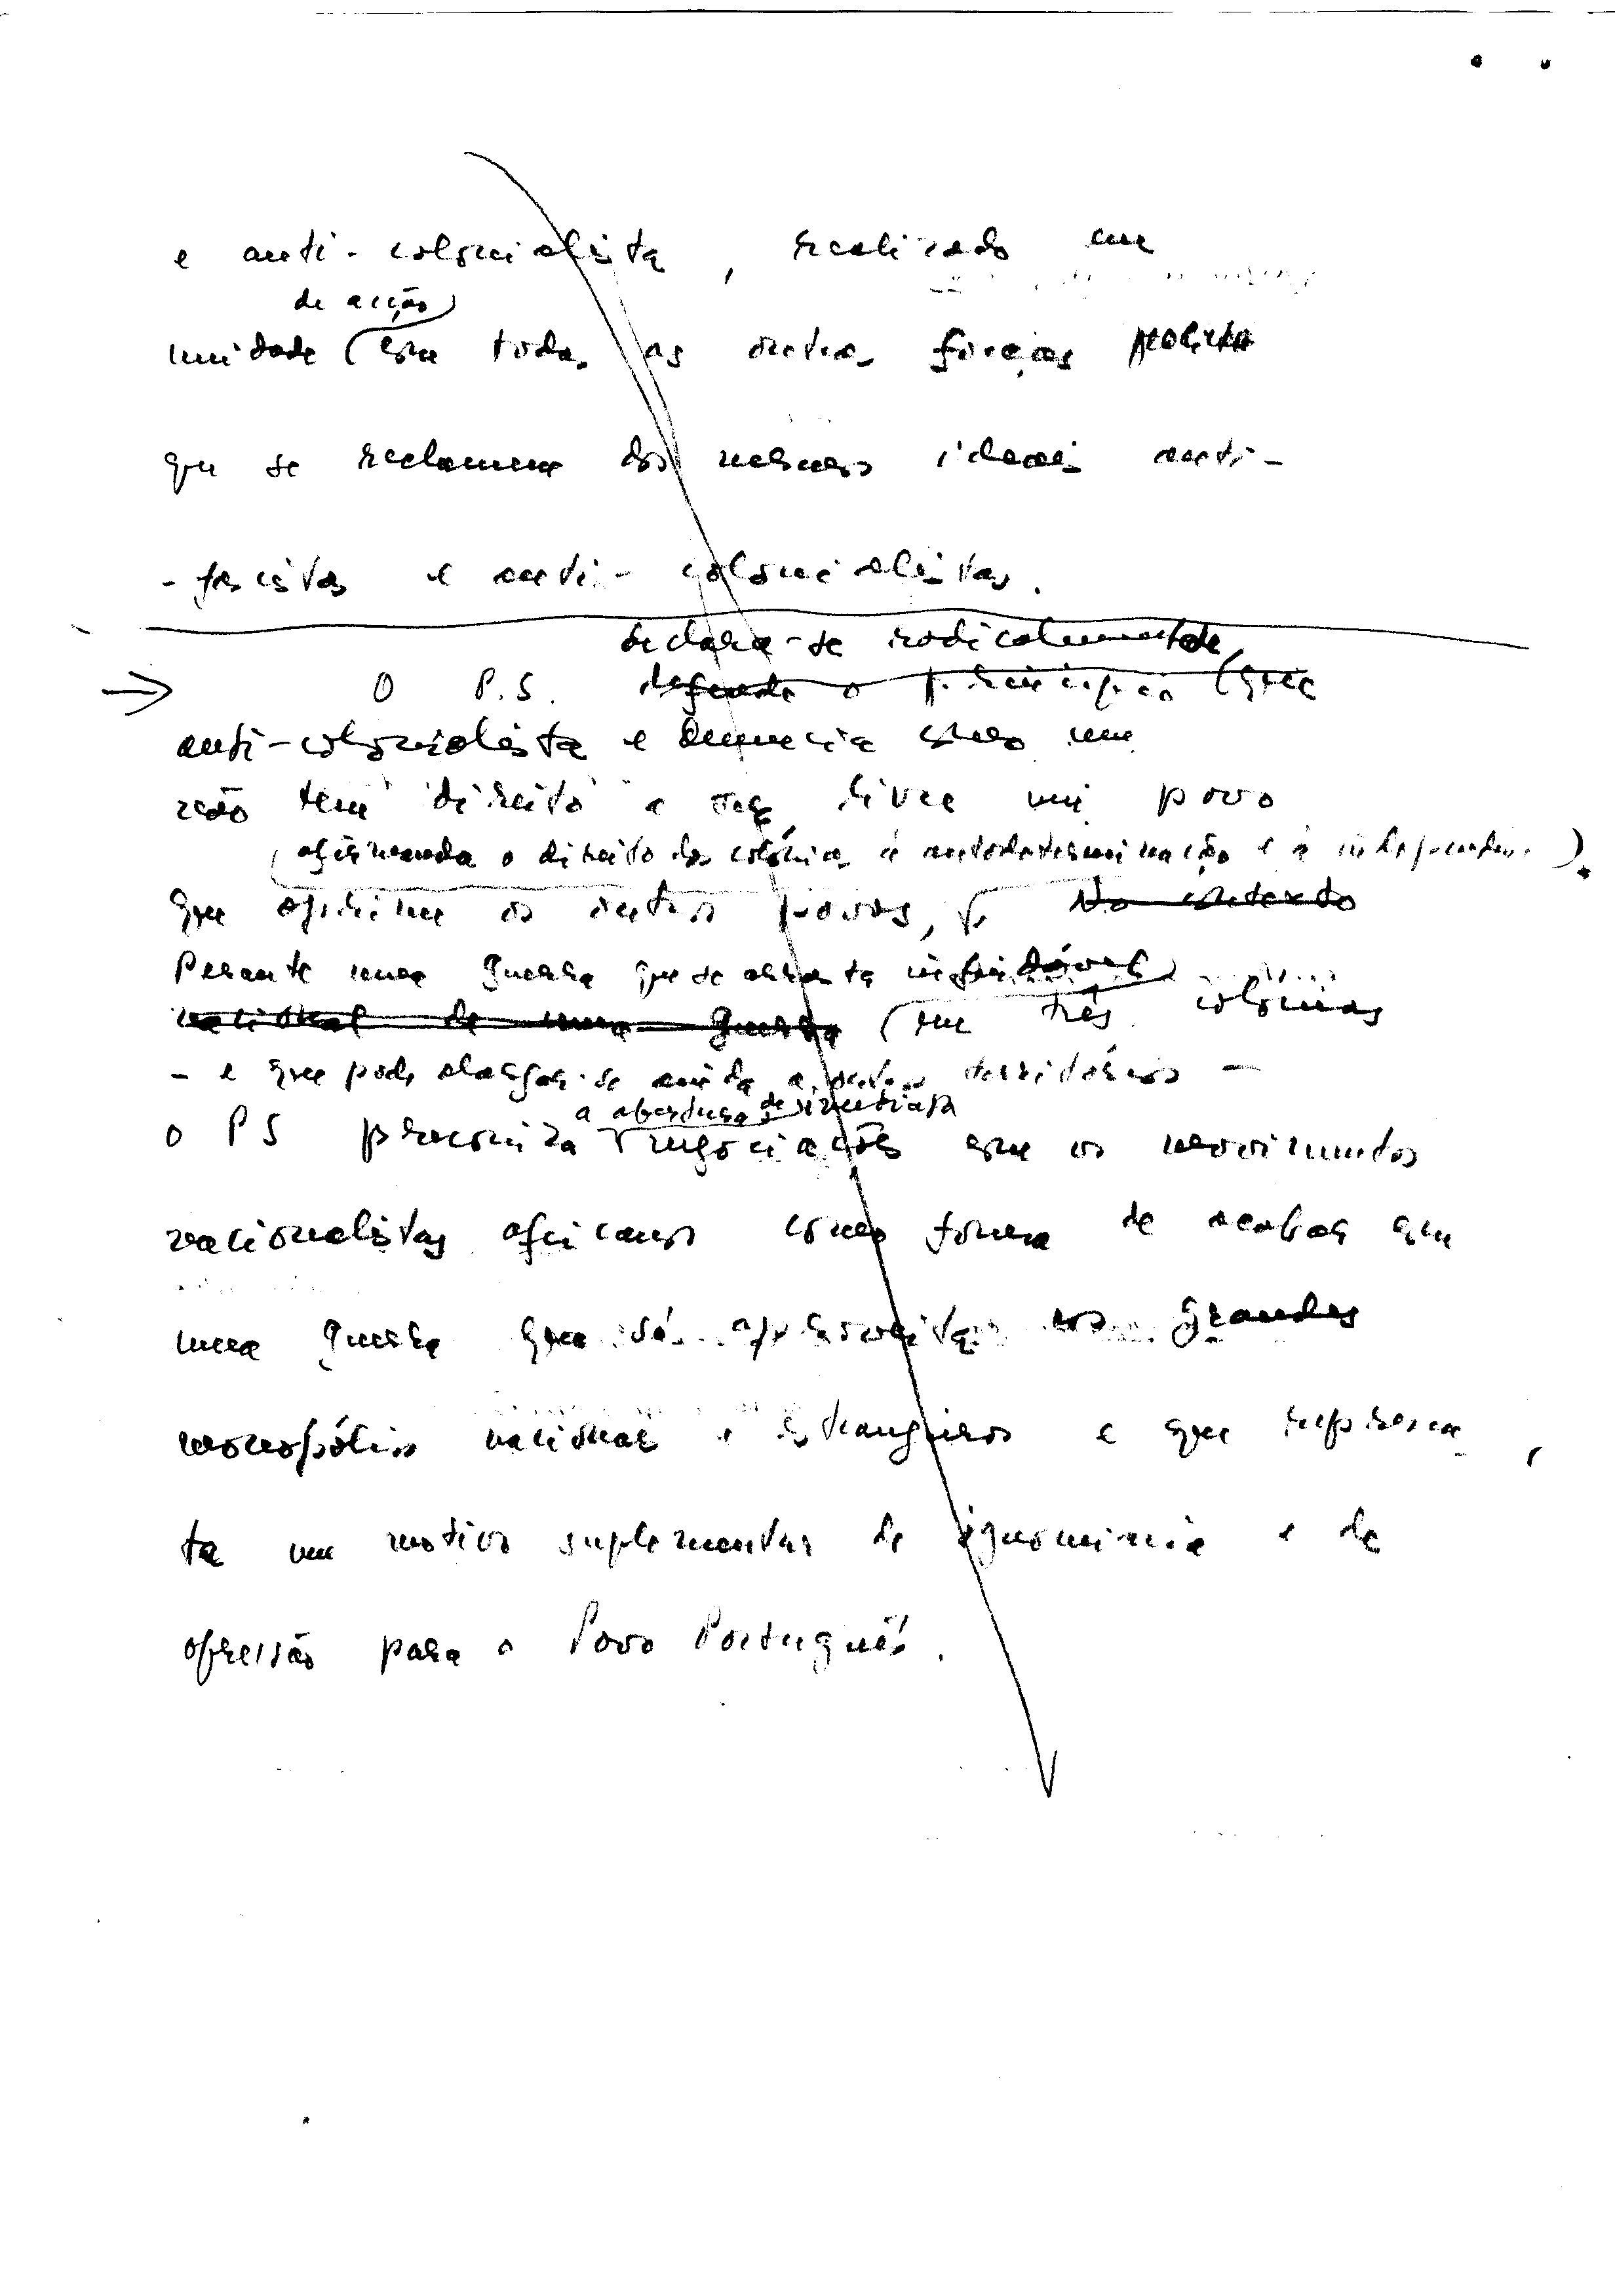 e anti-colonialista, realizado em
de acção
unidade com todas as outras forças
que se reclamem dos mesmos ideais anti-
-fascistas e anti-colonialistas.
declara-se radicalmente
O P.S. defende o princípio que
anti-colonialista e denuncia como um
não tem direito a ser livre um povo
(afirmando o direito das colónias à autodeterminação e à independência).
que oprime os outros povos, No contexto
Perante uma guerra que se arrasta infindável
nacional de uma guerra em três colónias
- e que pode alargar-se ainda a outros territórios -
a abertura de imediata
o PS preconiza negociações com os movimentos
nacionalistas africanos como forma de acabar com
uma guerra que só aproveita aos grandes
monopólios nacionais e estrangeiros e que represen
ta um motivo suplementar de ignominia e de
opressão para o Povo Português.